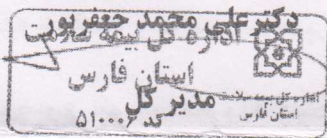 دکتر علی محمد جعفرپور
اداره کل بیمه سلامت
استان فارس
مدیر کل
کد ۵۱۰۰۰۶
اداره کل بیمه سلامت
استان فارس